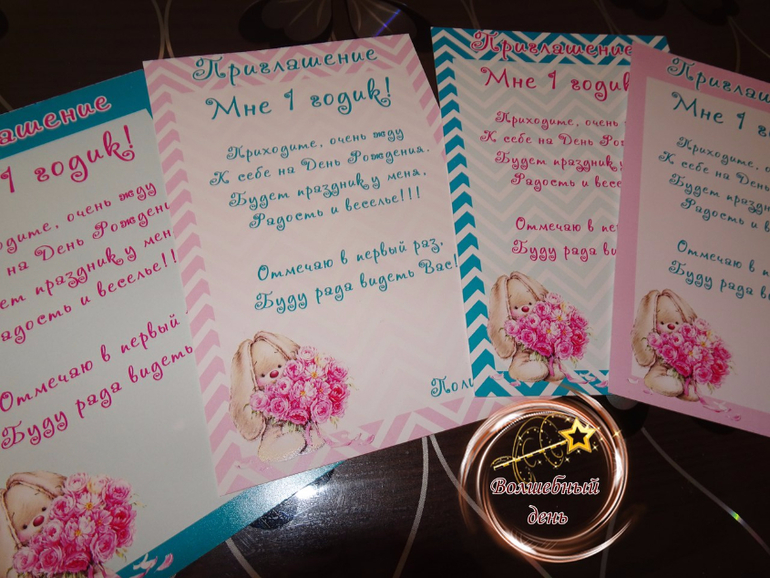 ашение
1 годик!
одите, очень жду
на День Рождени
ет праздник у меня,
адость и веселье!!
Отмечаю в первый
Буду рада видеть
Приглашение
Мне 1 годик!
Приходите, очень жду
К себе на День Рождения.
Будет праздник у меня,
Радость и веселье!!!
Отмечаю в первый раз,
Буду рада видеть Вас!
Поли
Приглашение
Мне 1 годик!
Приходите, очень
К себе на День Ро
Будет праздник
Радость и весе
Отмечаю в пер
Буду рада ви
Приглашение
Мне 1 годи
Приходите,
К себе на Де
Будет празд
Радость и
Отмечаю в п
Буду рада
Волшебный
день